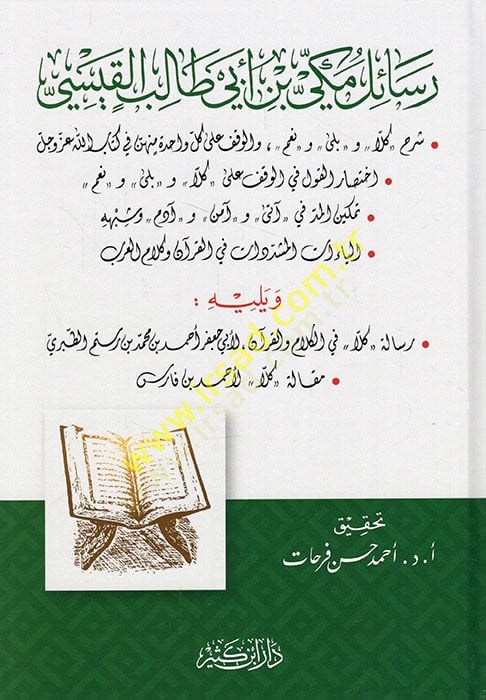 رسائل مكي بن أبي طالب القيسي
• شرح «كلا» و«بلى» و«نعم»، والوقف على كل واحدة منهن في كتاب الله عز وجل
• اختصار القول في الوقف على «كلا» و«بلى» و«نعم»
• تمكين المد في «آتى» و«آمن» و«آدم» وشبهه
• الياءات المشددات في القرآن وكلام العرب
ويليه :
• رسالة «كلا» في الكلام والقرآن، لأبي جعفر أحمد بن محمد بن رستم الطبري
• مقالة «كلا» لأحمد بن فارس
www.irsad.com.tr
irsad.com.tr
تحقيق
أ. د. أحمد حسن فرحات
دار ابن كثير